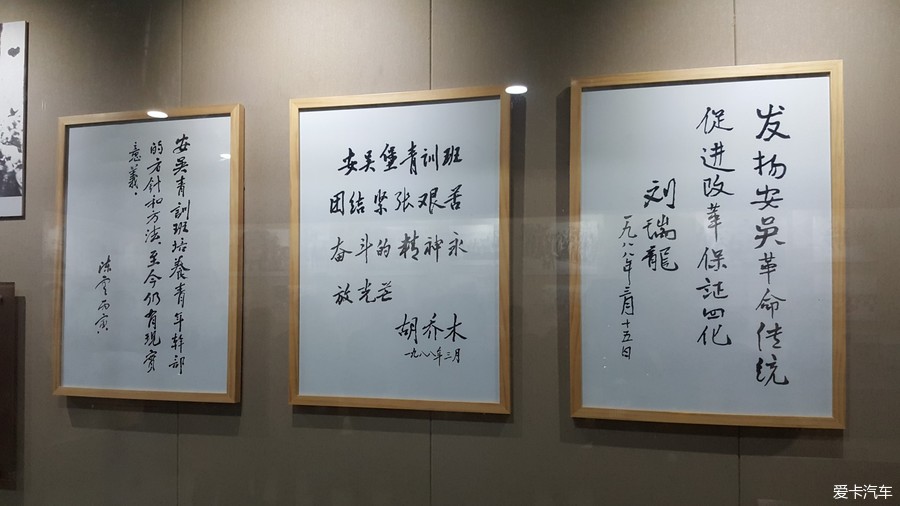 安吴青訓班培養青年幹部
的方針和方法,至今仍有現實
意義。
陈雲丙寅
安吴堡青训班
团结紧张艰苦
奋斗的精神永
放光芒
胡乔木
一九八八年三月
发扬安吴革命传统
促进改革保证四化
刘瑞龍
一九八八年三月十五日
爱卡汽车